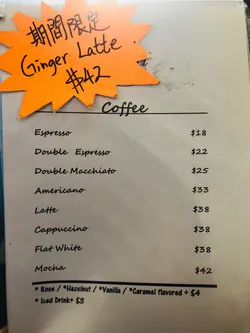 期間限定
Ginger Latte
$42
Coffee
Espresso $18
Double Espresso $22
Double Macchiato $25
Americano $33
Latte $38
Cappuccino $38
Flat White $38
Mocha $42
* Rose / *Hazelnut / *Vanilla / *Caramel flavored + $4
* Iced Drink+ $3